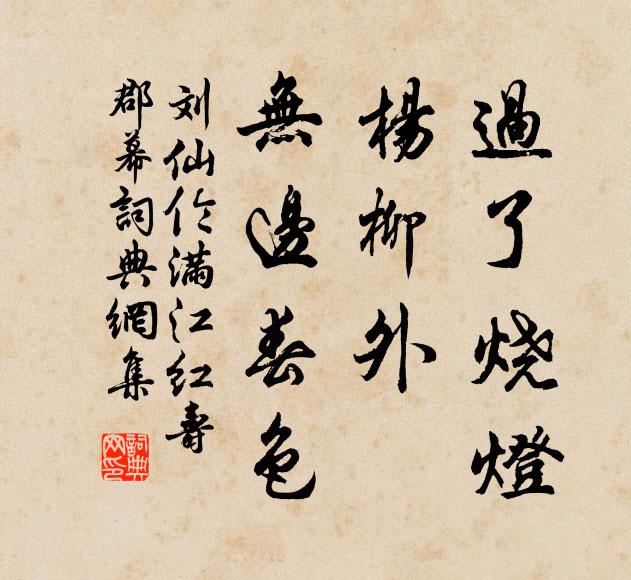 過了烧燈
楊柳外
無邊春色
刘仙伦满江红寿
郡幕詞典網集
詞典网印